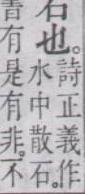 石也。
詩正義作
水中散石。
有是有非。不